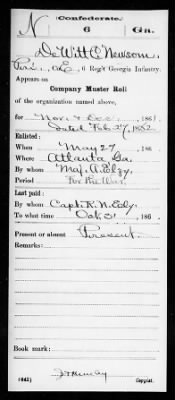 Confederate.
N 6 Ga.
De Witt C Newsom
Pvt., Co. E, 6 Reg't Georgia Infantry.
Appears on
Company Muster Roll
of the organization named above,
for Nov. & Dec., 186
dated Feb 27, 1862
Enlisted:
When May 27, 186
Where Atlanta Ga.
By whom Maj. A. Elzy
Period For the War
Last paid:
By whom Capt. R. N. Ely
To what time Oct. 31, 186
Present or absent Present
Remarks:
Book mark:
(642)
Copyist.